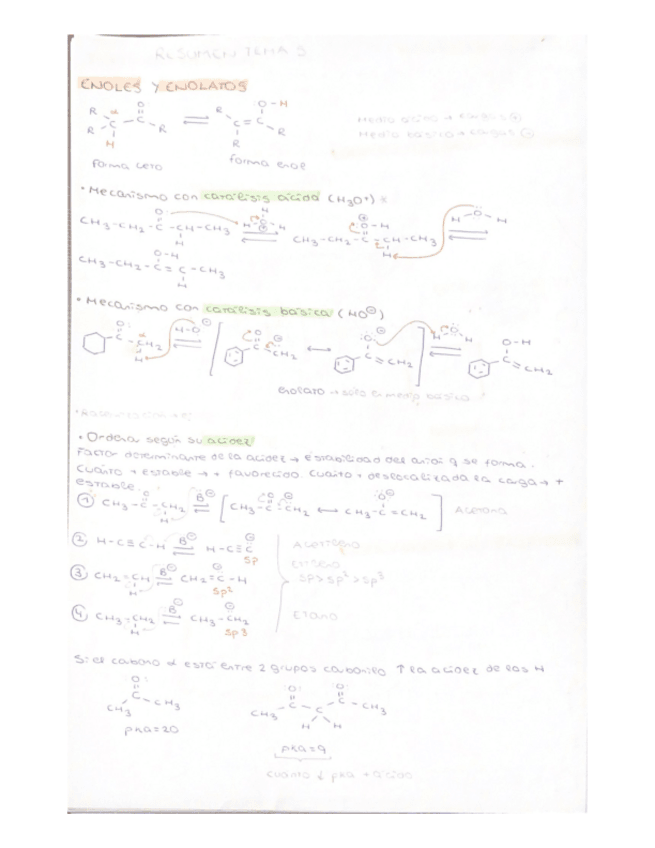 RESUMEN TEMA 5
ENOLES Y ENOLATOS
Forma ceto
forma enol
Medio ácido → cargas ⊕
Medio básico → cargas ⊖
• Mecanismo con catálisis ácida (H3O+)
CH3-CH2-C-CH-CH3
CH3-CH2-C-CH-CH3
CH3-CH2-C=C-CH3
• Mecanismo con catálisis básica (HO⊖)
enolato → solo en medio básico
• Ordena según su acidez
Factor determinante de la acidez → estabilidad del anión q se forma.
Cuanto + estable → + favorecido. Cuanto + deslocalizada la carga → +
estable.
① CH3-C-CH2 B⊖ [CH3-C-CH2 ↔ CH3-C=CH2] Acetona
② H-C≡C-H B⊖ H-C≡C sp Acetileno
③ CH2=CH B⊖ CH2=C-H sp2 Etileno
sp>sp2>sp3
④ CH3-CH2 B⊖ CH3-CH2 sp3 Etano
Si el carbono α está entre 2 grupos carbonilo ↑ la acidez de los H
CH3 C CH3
CH3 C C C CH3
H H
pka=20
pka=9
cuanto ↓ pka + ácido